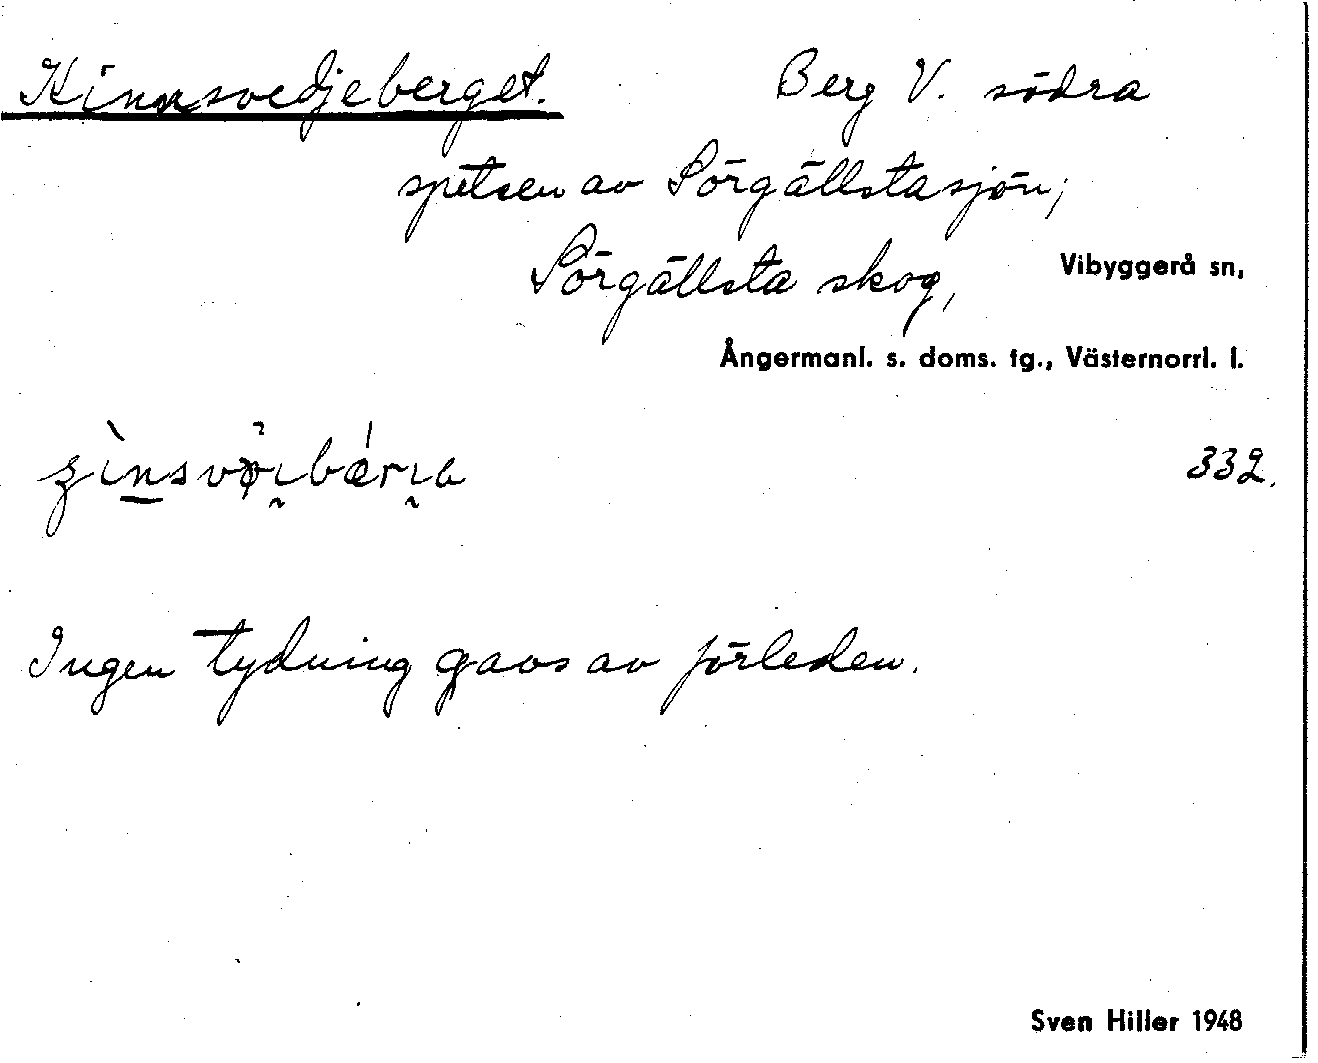 Kinnsvedjeberget. Berg V. södra
spetsen av Sörgällstasjön;
Sörgällsta skog, Vibyggerå sn,
Ångermanl. s. doms. tg., Västernorrl. l.
332.
Ingen tydning gavs av förleden.
Sven Hiller 1948